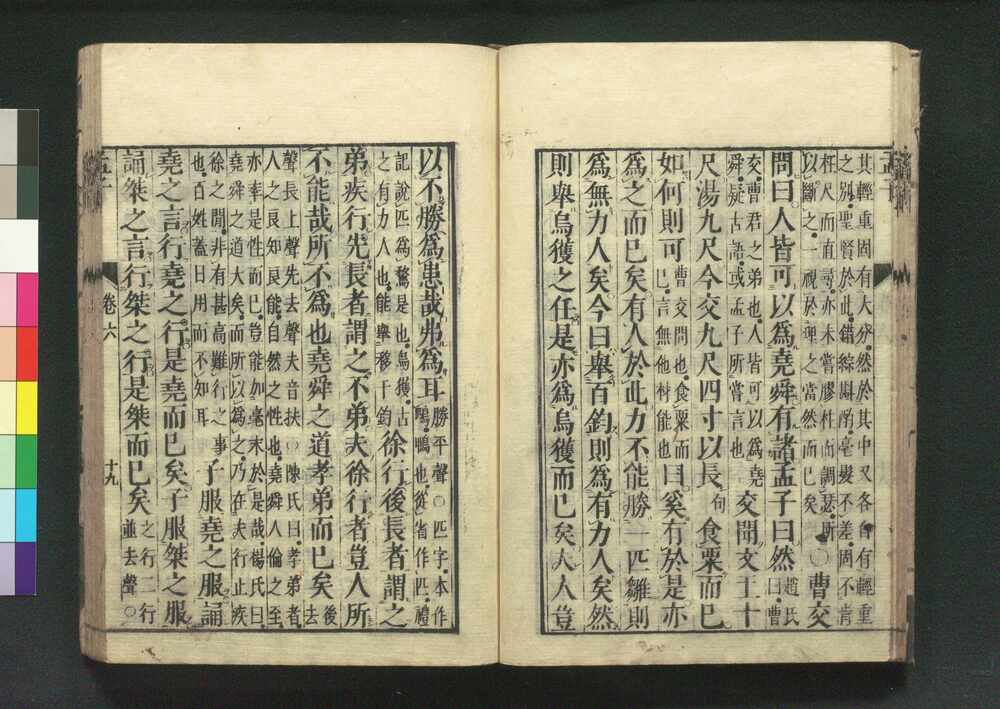 其輕重固有大分然於其中又各自有輕重
之別聖賢於此錯綜斟酌毫髮不差固不肯
枉尺而直尋亦未嘗膠柱而調瑟所
以斷之一視於理之當然而已矣
○曹交
問曰人皆可以爲堯舜有諸孟子曰然
趙氏
曰曹
交曹君之弟也人皆可以爲堯
舜疑古語或孟子所嘗言也
交聞文王十
尺湯九尺今交九尺四寸以長句食粟而已
如何則可
曹交問也食粟而
已言無他材能也
曰奚有於是亦
爲之而已矣有人於此力不能勝一匹雛則
爲無力人矣今曰舉百鈞則爲有力人矣然
則舉烏獲之任是亦爲烏獲而已矣夫人豈
以不勝爲患哉弗爲耳
勝平聲○匹字本作
鴄鴨也從省作匹禮
記說匹爲鶩是也烏獲古
之有力人也能舉移千鈞
徐行後長者謂之
弟疾行先長者謂之不弟夫徐行者豈人所
不能哉所不爲也堯舜之道孝弟而已矣
後
去
聲長上聲先去聲夫音扶○陳氏曰孝弟者
人之良知良能自然之性也堯舜人倫之至
亦率是性而已豈能加毫末於是哉楊氏曰
堯舜之道大矣而所以爲之乃在夫行止疾
徐之閒非有甚高難行之事
也百姓蓋日用而不知耳
子服堯之服誦
堯之言行堯之行是堯而已矣子服桀之服
誦桀之言行桀之行是桀而已矣
之行二行
並去聲○
卷六 十九